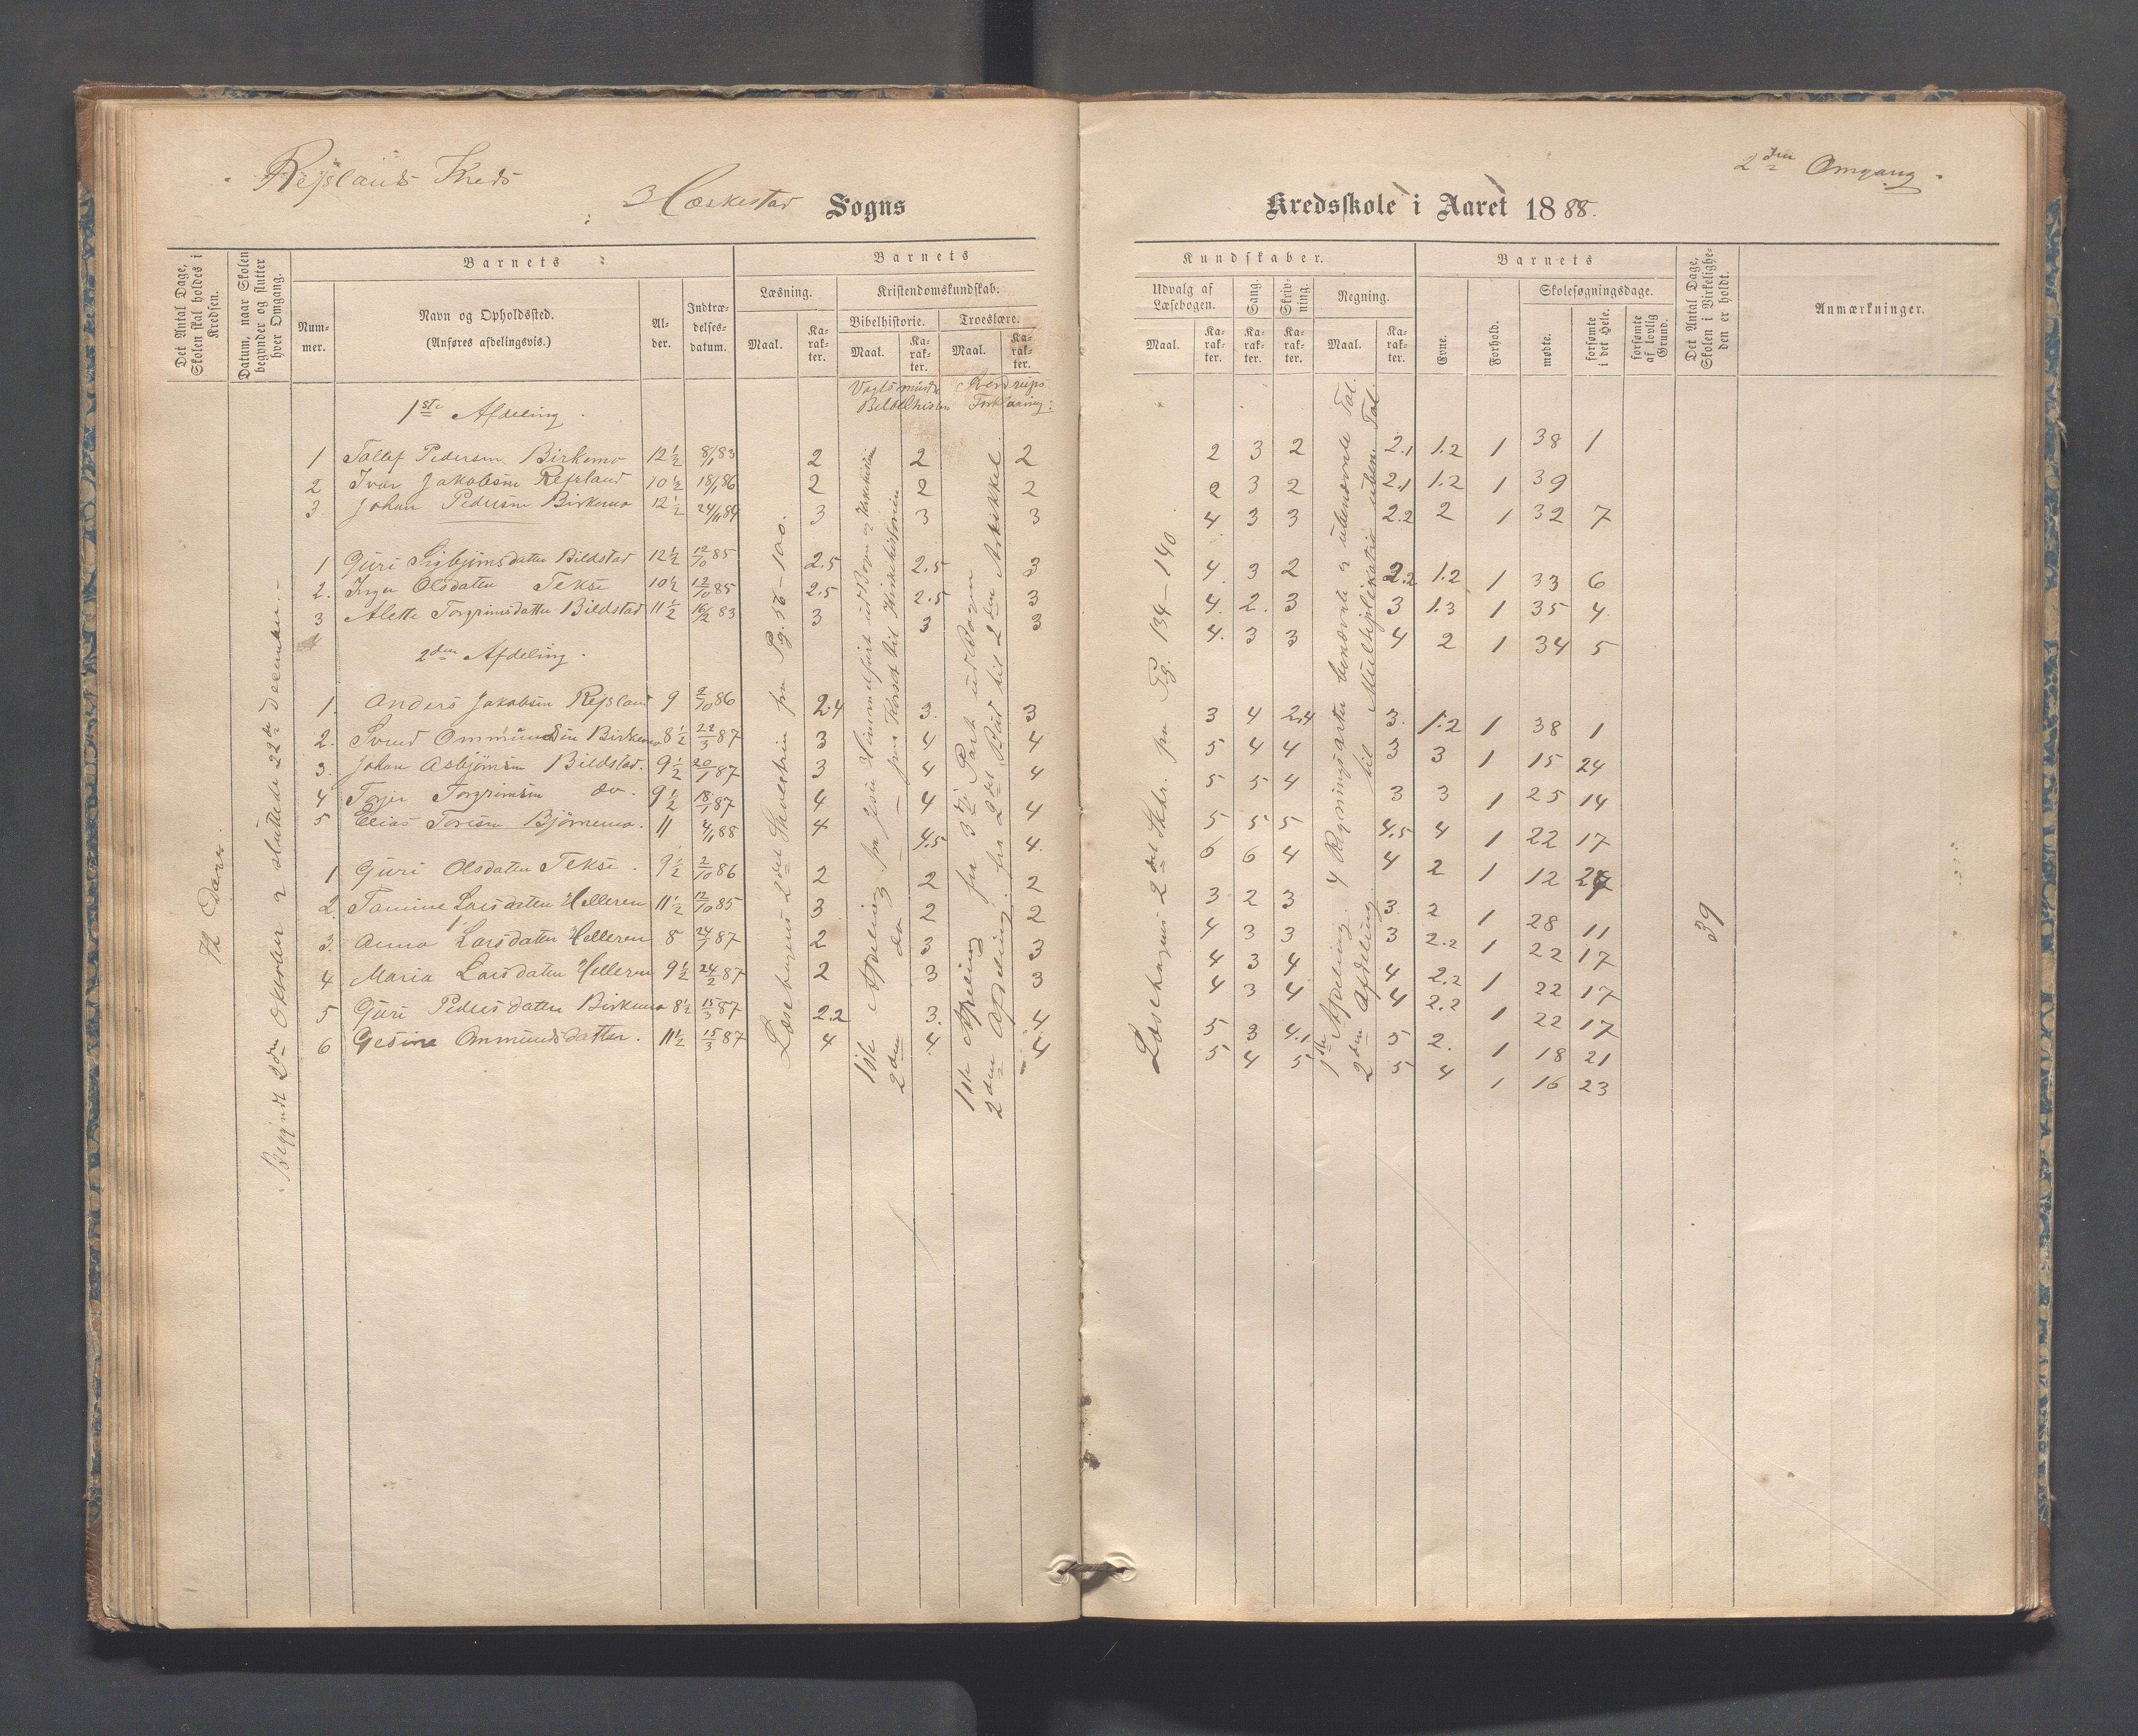 Rejslands Kreds
Heskestad Sogns
Kredsskole i Aaret 1888.
2den Omgang.
Det Antal Dage, Skolen skal holdes i Kredsen.
Datum, naar Skolen begynder og slutter hver Omgang.
Barnets
Num-mer.
Navn og Opholdssted.
(Anføres afdelingsvis.)
Al-der.
Indtræ-delses-datum.
Barnets
Læsning.
Maal.
Ka-rak-ter.
Kristendomskundskab.
Bibelhistorie.
Maal.
Ka-rak-ter.
Troeslære.
Maal.
Ka-rak-ter.
Kundskaber.
Udvalg af Læsebogen.
Maal.
Ka-rak-ter.
Sang.
Ka-rak-ter.
Skriv-ning.
Ka-rak-ter.
Regning.
Maal.
Ka-rak-ter.
Barnets
Evne.
Forhold.
Skolesøgningsdage.
mødte.
forsømte i det Hele.
forsømte af lovlig Grund.
Det Antal Dage, Skolen i Virkelighe-den er holdt.
Anmærkninger.
Begyndt 2den Oktober og sluttede 22de December.
1ste Afdeling.
1 Tollef Pedersen Birkemo 12½ 8/1 83 2 2 2 2 3 2 2.1 1.2 1 38 1
2 Ivar Jakobsen Rejsland 10½ 18/1 86 2 2 2 2 3 2 2.1 1.2 1 39
3. Johan Pedersen Birkemo 12½ 24/11 84 3 3 3 4 3 3 2.2 2 1 32 7
1 Guri Sigbjørnsdatter Bildstad 12½ 12/10 85 2.5 2.5 3 4. 3 2 2.2 1.2 1 33 6
2. Inger Olsdatter Tekse 10½ 12/10 85 2.5 2.5 3 4. 2. 3 3 1.3 1 35 4.
3 Alette Torgrimsdatter Bildstad 11½ 16/2 83 3 3 3 4. 3 3 4 2 1 34 5
2den Afdeling.
1. Anders Jakobsen Rejsland 9 2/10 86 2.4 3. 3 3 4 2.4 3. 1.2 1 38 1
2. Svend Ommundsen Birkemo 8½ 22/3 87 3 4 4 5 4 4 3 3 1 15 24
3. Johan Asbjørnsen Bildstad. 9½ 20/1 87 3 4 4 5 5 4 3 3 1 25 14
4 Torjer Torgrimsen do. 9½ 18/1 87 4 4 4 5 5 5 4.5 4 1 22 17
5 Elias Toresen Bjørnemo. 11 4/11 88 4 4.5 4. 6 6 4 4 2 1 12 27
1 Guri Olsdatter Tekse. 9½ 2/10 86 2 2 2 3 2 3 3. 2 1 28 11
2. Tomine Larsdatter Helleren 11½ 12/10 85 3 2 2 4 3 3 3 2.2 1 22 17
3. Anna Larsdatter Helleren 8 24/1 87 2 3 3 4 3 4 4 2.2 1 22 17
4 Maria Larsdatter Helleren 9½ 24/2 87 2 3 3 4 3 4 4 2.2 1 22 17
5 Guri Pedersdatter Birkemo 8½ 15/3 87 2.2 3. 4 5 3 4.1 5 2. 1 18 21
6 Gesine Ommundsdatter. 11½ 15/3 87 4 4. 4 5 4 5 5 4 1 16 23
Læsebogens 2det Skoletrin fra Pg. 56-100.
Vogts mindre Bibelhistorie
1ste Afdeling fra Jesu Himmelfart ud Bogen og Kirkehistorien
2den do fra Korset til Kirkehistorien
Forklaring:
1ste Afdeling fra 3die Part ud Bogen
2den Afdeling. fra 2det Bud til 2den Artikkel.
Læsebogens 2det Skr. fra Pg. 134-140.
1ste Afdeling. 4 Regningsarter benævnte og ubenævnte Tal.
2den Afdeling. til Multiplikation uben. Tal.
39